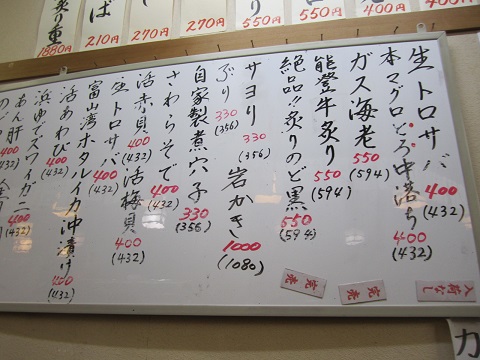 生トロサバ 400 (432)
本マグロとろ中落ち 400 (432)
ガス海老 550 (594)
能登牛炙り 550 (594)
絶品!!炙りのど黒 550 (594)
サヨリ 330 (356)
岩かき 1000 (1080)
ぶり 330 (356)
自家製煮穴子 330 (356)
さわらそで 400 (432)
活青貝 400 (432)
活梅貝 400 (432)
生トロサバ 400 (432)
富山湾ホタルイカ沖漬け 400 (432)
活あわび 400 (432)
浜ゆでズワイガニ 400 (432)
あん肝 400 (432)
入荷なし
完売
完売
炙り重 1880円
ば 210円
270円
270円
り 550円
550円
400円
400円
カ